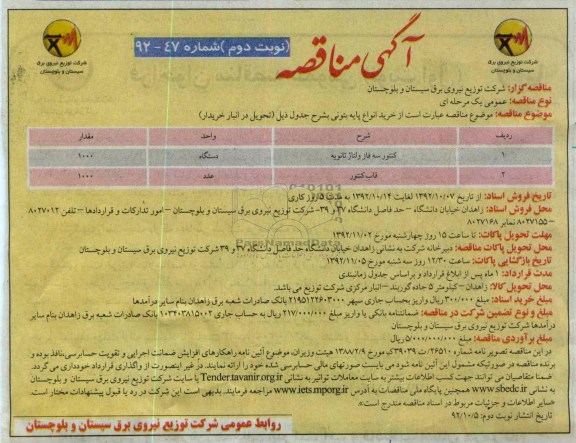 آگهی مناقصه
(نوبت دوم) شماره ۴۷-۹۲
شرکت توزیع نیروی برق
سیستان و بلوچستان
شرکت توزیع نیروی برق
سیستان و بلوچستان
مناقصه گزار: شرکت توزیع نیروی برق سیستان و بلوچستان
نوع مناقصه: عمومی یک مرحله ای
موضوع مناقصه: موضوع مناقصه عبارت است از خرید انواع پایه بتونی بشرح جدول ذیل (تحویل در انبار خریدار)
ردیف شرح واحد مقدار
۱ کنتور سه فاز ولتاژ ثانویه دستگاه ۱۰۰۰
۲ قاب کنتور عدد ۱۰۰۰
تاریخ فروش اسناد: از تاریخ ۱۳۹۲/۱۰/۰۷ لغایت ۱۳۹۲/۱۰/۱۴ به مدت ۵ روز کاری
محل فروش اسناد: زاهدان خیابان دانشگاه – حد فاصل دانشگاه ۳۷ و ۳۹- شرکت توزیع نیروی برق سیستان و بلوچستان – امور تدارکات و قراردادها – تلفن ۸۰۲۷۰۱۲
–۸۰۲۷۱۵۵ نمابر ۸۰۲۷۱۶۸
مهلت تحویل پاکات: تا ساعت ۱۵ روز چهارشنبه مورخ ۱۳۹۲/۱۱/۰۲
محل تحویل پاکات مناقصه: دبیرخانه شرکت به نشانی زاهدان خیابان دانشگاه حد فاصل دانشگاه ۳۷ و ۳۹ شرکت توزیع نیروی برق سیستان و بلوچستان
تاریخ بازگشایی پاکات: ساعت ۱۲/۳۰ روز سه شنبه مورخ ۱۳۹۲/۱۱/۰۵
مدت قرارداد: ۱ ماه پس از ابلاغ قرارداد و براساس جدول زمانبندی
محل تحویل کالا: زاهدان – کیلومتر ۵ جاده گوربند – انبار مرکزی شرکت توزیع می باشد.
مبلغ خرید اسناد: مبلغ ۳۰۰/۰۰۰ ریال واریز بحساب جاری سپهر ۲۱۹۵۱۲۲۶۰۳۰۰۰ بانک صادرات شعبه برق زاهدان بنام سایر درآمدها
مبلغ و نوع تضمین شرکت در مناقصه: ضمانتنامه بانکی یا واریز مبلغ ۲۱۷/۰۰۰/۰۰۰ ریال به حساب جاری ۱۰۳۴۰۳۸۱۵۰۰۲ بانک صادرات شعبه برق زاهدان بنام سایر
درآمدها شرکت توزیع نیروی برق سیستان و بلوچستان
مبلغ برآوردی مناقصه: مبلغ ۵/۰۰۰/۰۰۰/۰۰۰ ریال
در این مناقصه تصویر نامه شماره ۲۶۵۱۰/ت۳۹۰۳۹ک مورخ ۱۳۸۸/۲/۹ هیئت وزیران، موضوع آئین نامه راهکارهای افزایش ضمانت اجرایی و تقویت حسابرسی، نافذ بوده و
برنده مناقصه در صورتیکه مشمول این آئین نامه شود می بایست صورتهای مالی حسابرسی شده خود را ارائه نمایند. در غیر اینصورت از واگذاری قرارداد خودداری می گردد.
ضمنا متقاضیان می توانند جهت کسب اطلاعات بیشتر به سایت معاملات توانیر به نشانی Tender.tavanir.org.ir یا سایت شرکت توزیع نیروی برق سیستان و بلوچستان
به نشانی www.sbedc.ir همچنین پایگاه ملی مناقصات به آدرس www.iets.mporg.ir مراجعه فرمایند. بدیهی است این شرکت در رد یا قبول پیشنهادات مختار است.
«سایر اطلاعات و جزئیات مربوط در اسناد مناقصه مندرج است»
تاریخ انتشار نوبت دوم: ۹۲/۱۰/۵
روابط عمومی شرکت توزیع نیروی برق سیستان و بلوچستان